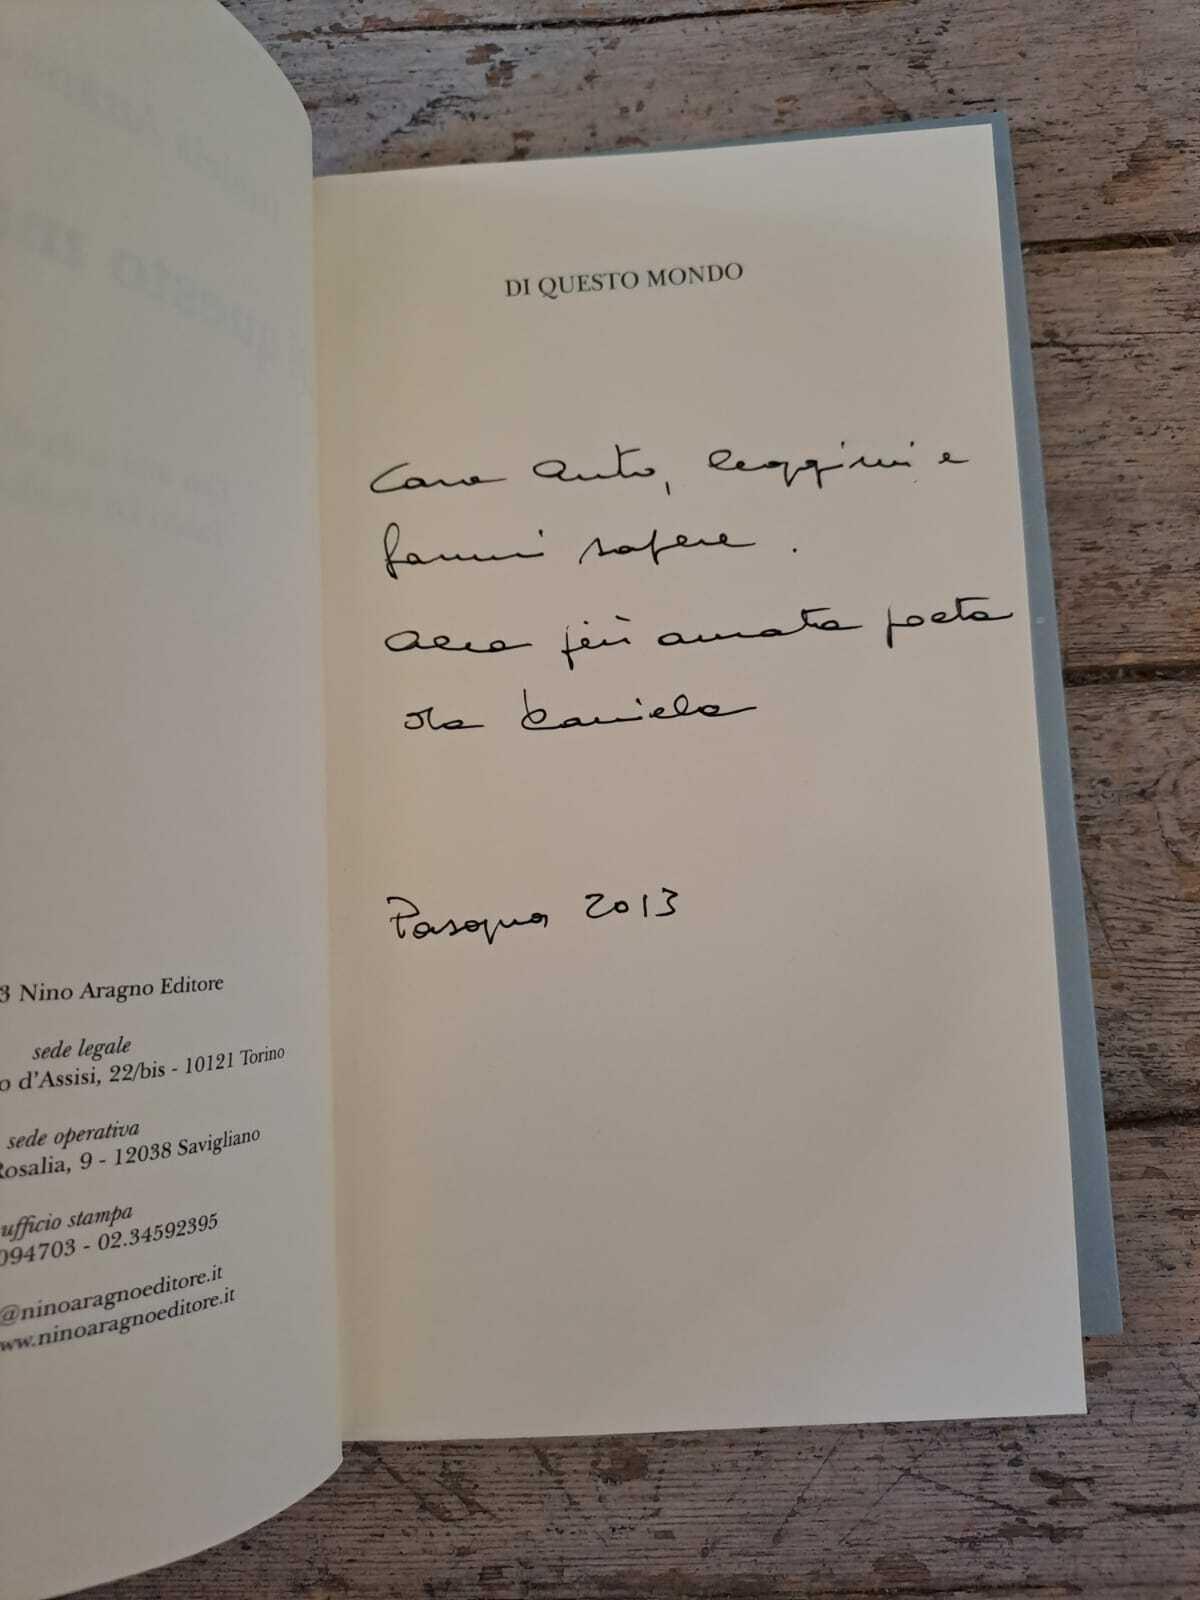 3 Nino Aragno Editore
sede legale
o d'Assisi, 22/bis - 10121 Torino
sede operativa
Rosalia, 9 - 12038 Savigliano
ufficio stampa
094703 - 02.34592395
@ninoaragnoeditore.it
www.ninoaragnoeditore.it
DI QUESTO MONDO
Cara Anto, leggimi e
fammi sapere.
Alla più amata poeta
da Daniela
Pasqua 2013